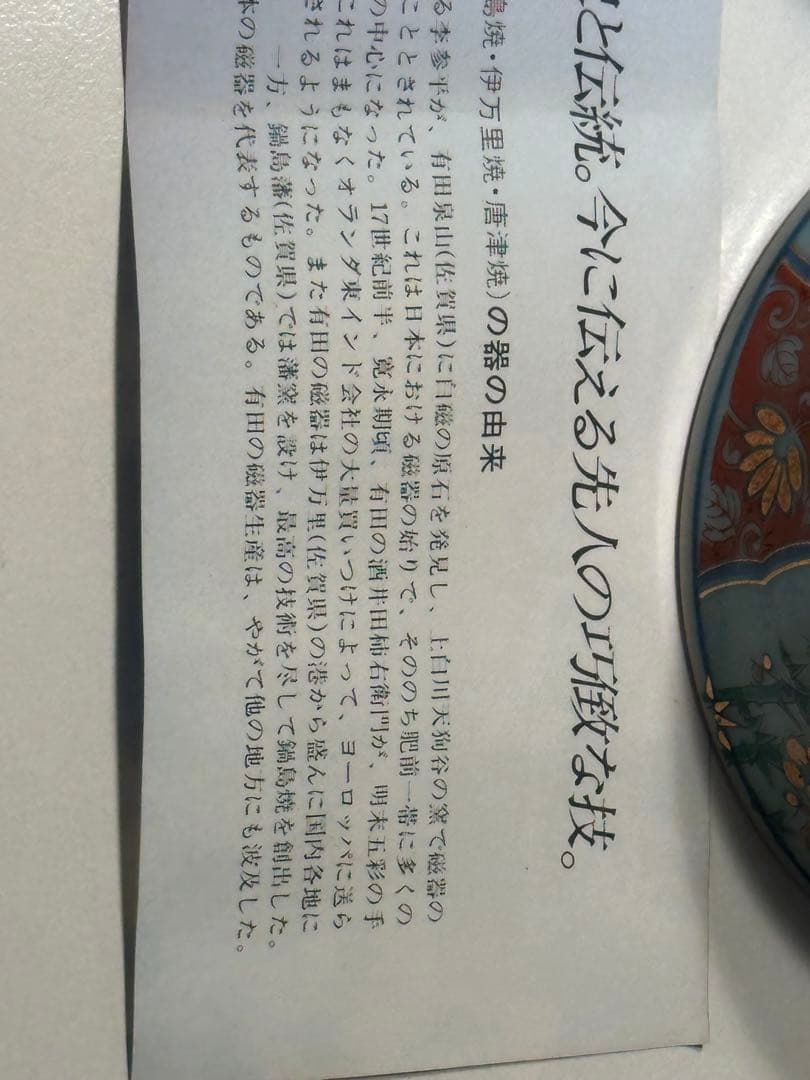 と伝統。今に伝える先人の巧緻な技。
島焼・伊万里焼・唐津焼)の器の由来
る李参平が、有田泉山(佐賀県)に白磁の原石を発見し、上白川天狗谷の窯で磁器の
こととされている。これは日本における磁器の始りで、そののち肥前一帯に多くの
の中心になった。17世紀前半、寛永期頃、有田の酒井田柿右衛門が、明末五彩の手
これはまもなくオランダ東インド会社の大量買いつけによって、ヨーロッパに送ら
されるようになった。また有田の磁器は伊万里(佐賀県)の港から盛んに国内各地に
一方、鍋島藩(佐賀県)では藩窯を設け、最高の技術を尽して鍋島焼を創出した。
本の磁器を代表するものである。有田の磁器生産は、やがて他の地方にも波及した。